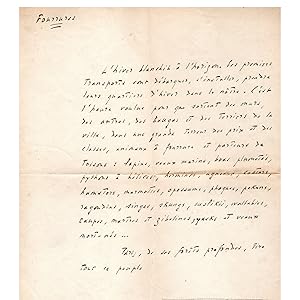 Fourrures
L'hiver blanchit à l'horizon. Les premiers
transports sont débarqués, s'installer, prendre
leurs quartiers d'hiver dans la nôtre. C'est
l'heure voulue pour que sortent des murs,
des antres, des bouges et des terriers de la
ville, dans une grande terreur des prix et des
classes, animaux à fourrure et porteurs de
toisons : lapins, veaux marins, boas plumetés,
pythons à hélices, hermines, agneaux, castors,
hamsters, marmottes, opossums, phoques, pékans,
ragondins, singes, skungs, wallabies,
loups, martres et zibelines, yacks et veaux
morts-nés ...
Paris, de ses forêts profondes, tire
tout ce peuple